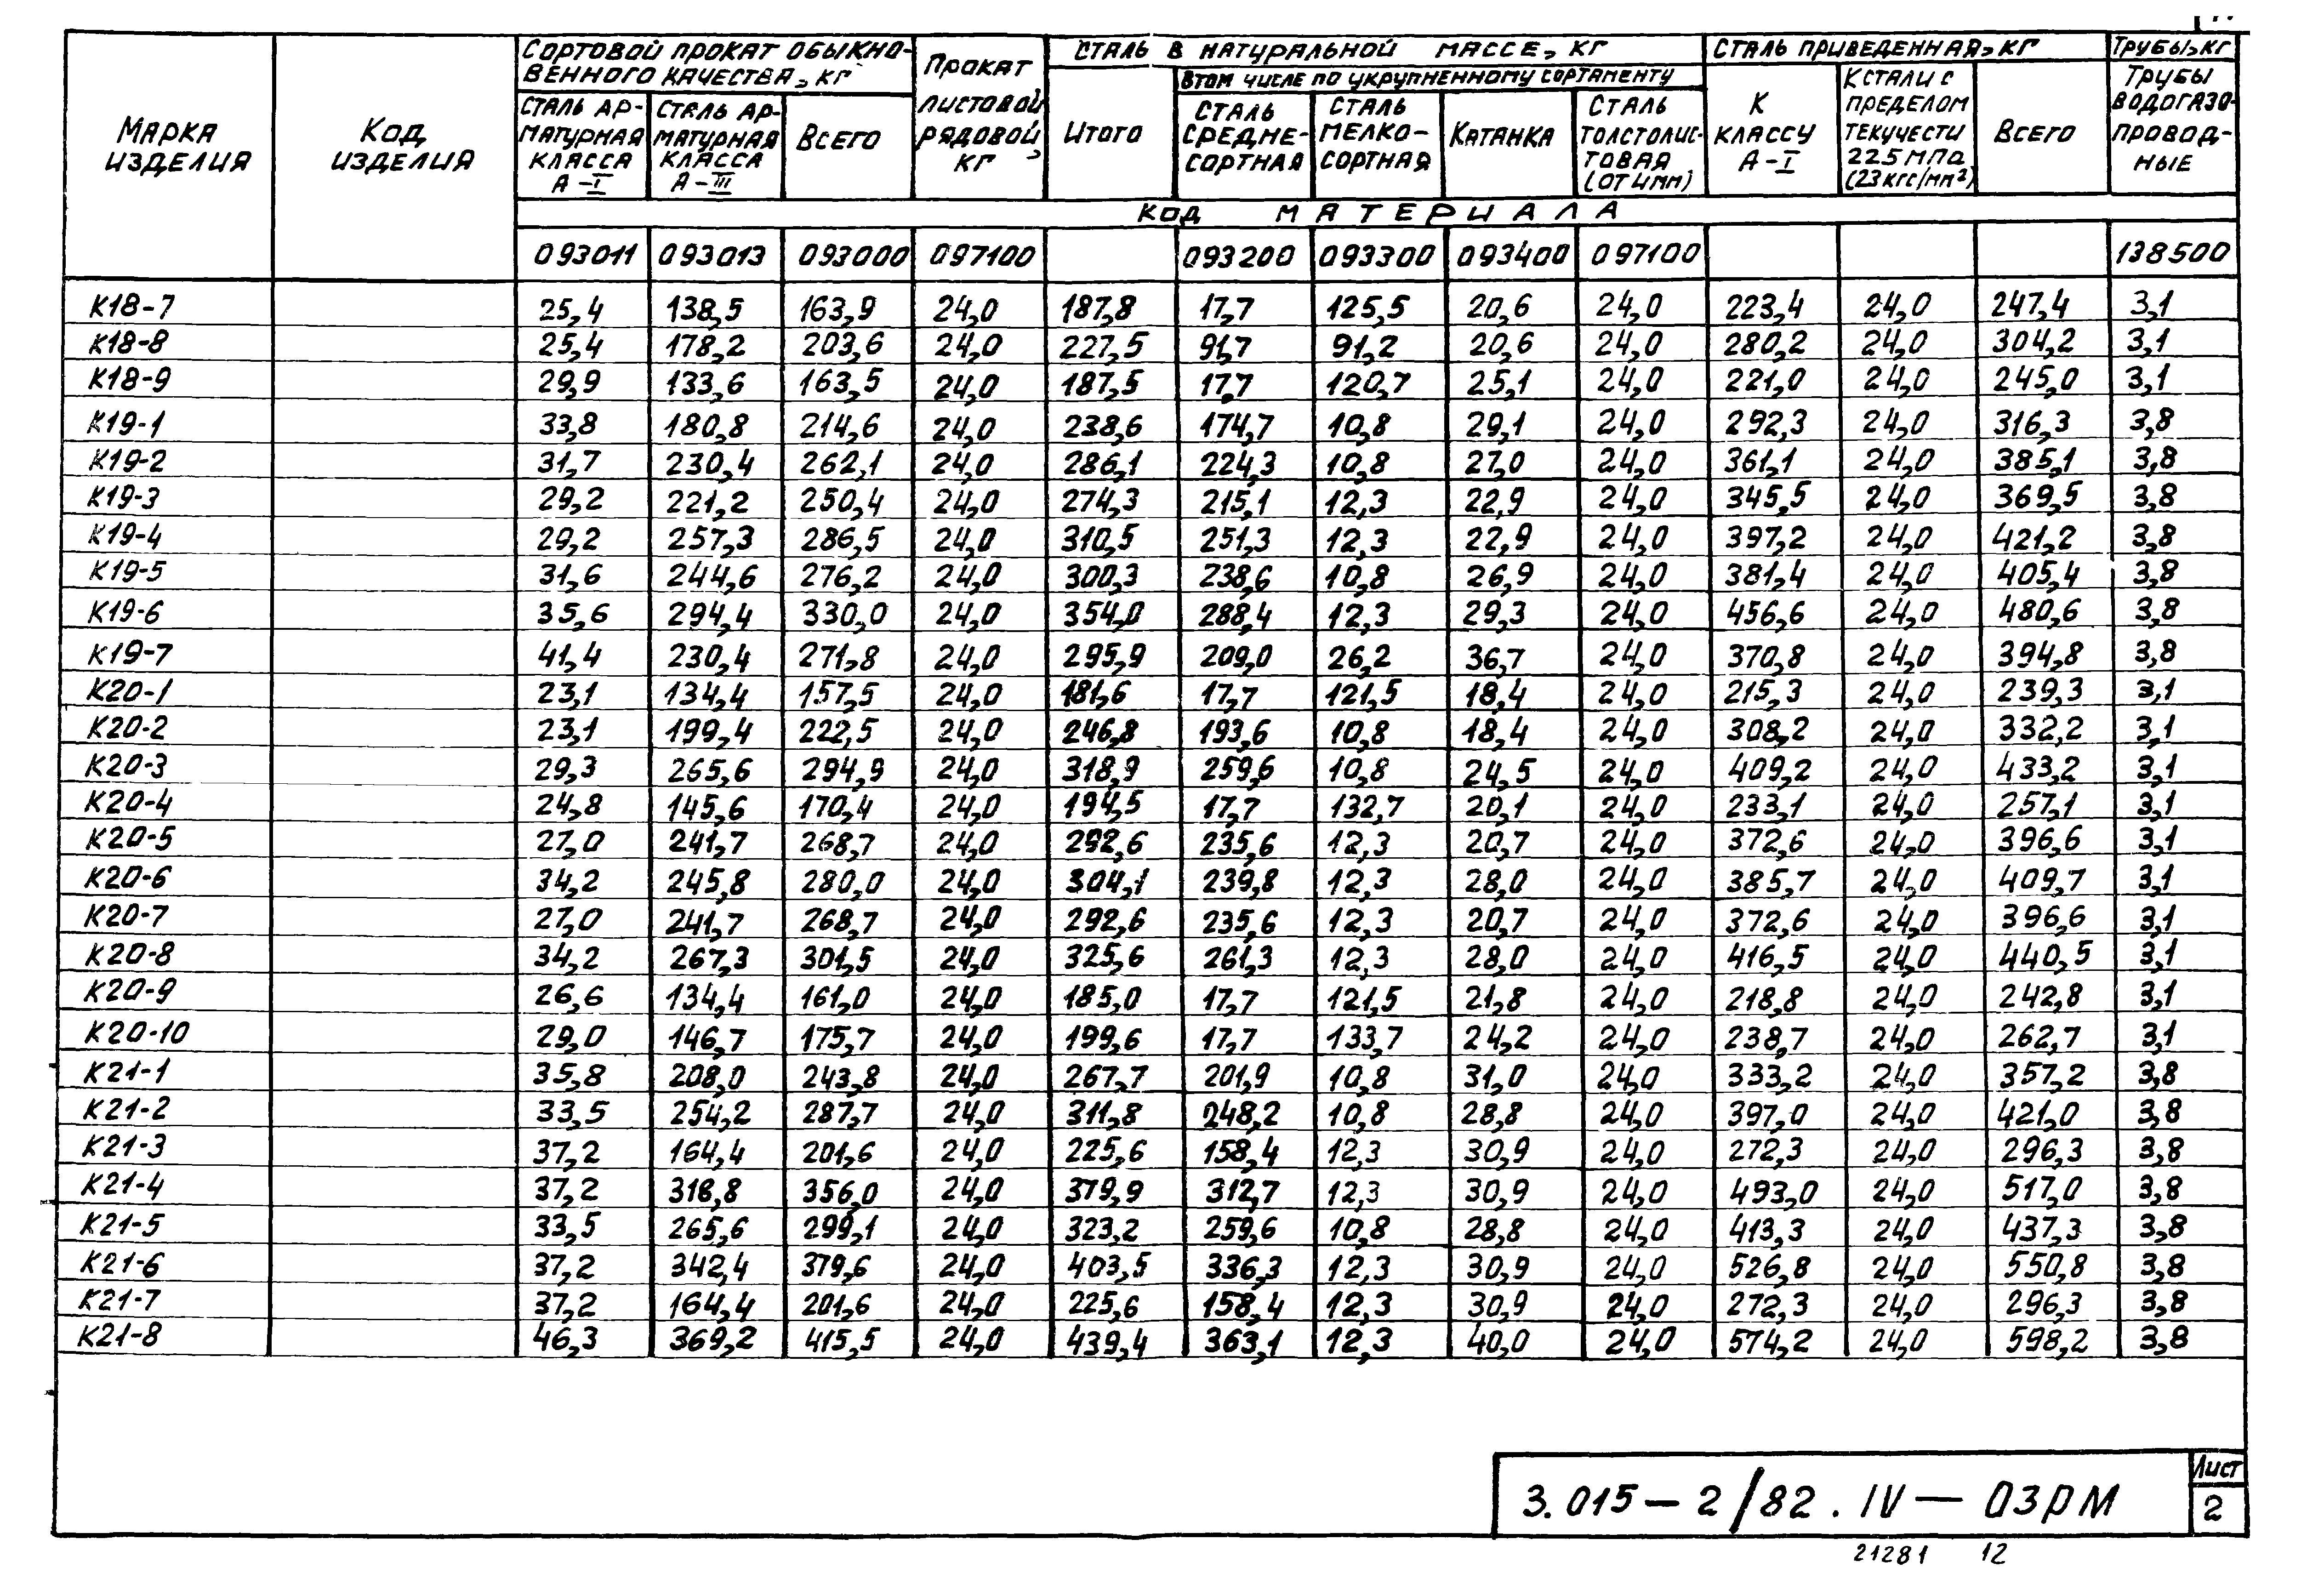 Марка изделия | Код изделия | Сортовой прокат обыкновенного качества, кг | Прокат листовой рядовой, кг | Сталь в натуральной массе, кг | Сталь приведенная, кг | Трубы, кг
В том числе по укрупненному сортаменту
Сталь арматурная класса А-I | Сталь арматурная класса А-III | Всего | Итого | Сталь среднесортная | Сталь мелкосортная | Катанка | Сталь толстолистовая (от 4мм) | К классу А-I | К стали с пределом текучести 225 МПа (23 кгс/мм²) | Всего | Трубы водогазопроводные
Код материала
093011 093013 093000 097100 093200 093300 093400 097100 138500
К18-7 25,4 138,5 163,9 24,0 187,8 17,7 125,5 20,6 24,0 223,4 24,0 247,4 3,1
К18-8 25,4 178,2 203,6 24,0 227,5 91,7 91,2 20,6 24,0 280,2 24,0 304,2 3,1
К18-9 29,9 133,6 163,5 24,0 187,5 17,7 120,7 25,1 24,0 221,0 24,0 245,0 3,1
К19-1 33,8 180,8 214,6 24,0 238,6 174,7 10,8 29,1 24,0 292,3 24,0 316,3 3,8
К19-2 31,7 230,4 262,1 24,0 286,1 224,3 10,8 27,0 24,0 361,1 24,0 385,1 3,8
К19-3 29,2 221,2 250,4 24,0 274,3 215,1 12,3 22,9 24,0 345,5 24,0 369,5 3,8
К19-4 29,2 257,3 286,5 24,0 310,5 251,3 12,3 22,9 24,0 397,2 24,0 421,2 3,8
К19-5 31,6 244,6 276,2 24,0 300,3 238,6 10,8 26,9 24,0 381,4 24,0 405,4 3,8
К19-6 35,6 294,4 330,0 24,0 354,0 288,4 12,3 29,3 24,0 456,6 24,0 480,6 3,8
К19-7 41,4 230,4 271,8 24,0 295,9 209,0 26,2 36,7 24,0 370,8 24,0 394,8 3,8
К20-1 23,1 134,4 157,5 24,0 181,6 17,7 121,5 18,4 24,0 215,3 24,0 239,3 3,1
К20-2 23,1 199,4 222,5 24,0 246,8 193,6 10,8 18,4 24,0 308,2 24,0 332,2 3,1
К20-3 29,3 265,6 294,9 24,0 318,9 259,6 10,8 24,5 24,0 409,2 24,0 433,2 3,1
К20-4 24,8 145,6 170,4 24,0 194,5 17,7 132,7 20,1 24,0 233,1 24,0 257,1 3,1
К20-5 27,0 241,7 268,7 24,0 292,6 235,6 12,3 20,7 24,0 372,6 24,0 396,6 3,1
К20-6 34,2 245,8 280,0 24,0 304,1 239,8 12,3 28,0 24,0 385,7 24,0 409,7 3,1
К20-7 27,0 241,7 268,7 24,0 292,6 235,6 12,3 20,7 24,0 372,6 24,0 396,6 3,1
К20-8 34,2 267,3 301,5 24,0 325,6 261,3 12,3 28,0 24,0 416,5 24,0 440,5 3,1
К20-9 26,6 134,4 161,0 24,0 185,0 17,7 121,5 21,8 24,0 218,8 24,0 242,8 3,1
К20-10 29,0 146,7 175,7 24,0 199,6 17,7 133,7 24,2 24,0 238,7 24,0 262,7 3,1
К21-1 35,8 208,0 243,8 24,0 267,7 201,9 10,8 31,0 24,0 333,2 24,0 357,2 3,8
К21-2 33,5 254,2 287,7 24,0 311,8 248,2 10,8 28,8 24,0 397,0 24,0 421,0 3,8
К21-3 37,2 164,4 201,6 24,0 225,6 158,4 12,3 30,9 24,0 272,3 24,0 296,3 3,8
К21-4 37,2 318,8 356,0 24,0 379,9 312,7 12,3 30,9 24,0 493,0 24,0 517,0 3,8
К21-5 33,5 265,6 299,1 24,0 323,2 259,6 10,8 28,8 24,0 413,3 24,0 437,3 3,8
К21-6 37,2 342,4 379,6 24,0 403,5 336,3 12,3 30,9 24,0 526,8 24,0 550,8 3,8
К21-7 37,2 164,4 201,6 24,0 225,6 158,4 12,3 30,9 24,0 272,3 24,0 296,3 3,8
К21-8 46,3 369,2 415,5 24,0 439,4 363,1 12,3 40,0 24,0 574,2 24,0 598,2 3,8
3.015-2/82.IV-03РМ
Лист
2
21281 12